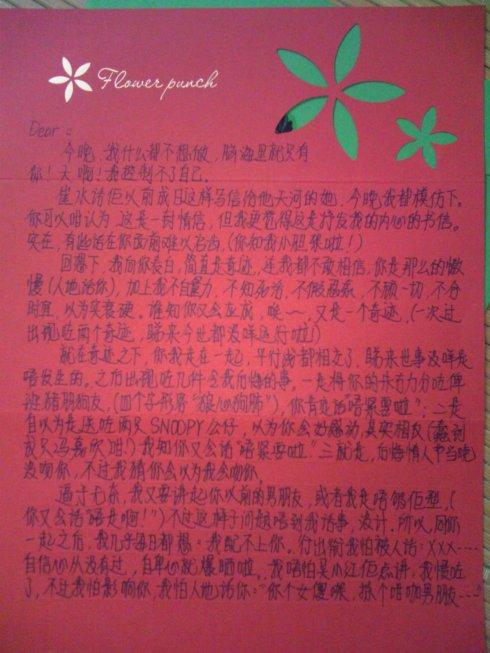 Flower punch
Dear：
今晚，我什么都不想做，脑海里就只有
你！天啊！我控制不了自己。
崔水话佢以前成日这样写信给他天河的她，今晚我都模仿下。
你可以咁认为，这是一封情信，但我更觉得这是抒发我的内心的书信。
实在，有些话在你面前难以启齿，(你知我小胆架啦！)
回想下，我向你表白，简直是奇迹，连我都不敢相信，你是那么的
慢(人地话你)，加上我不自量力，不知
时宜，以为实衰硬。谁知你又会应承，唉～，又是一个奇迹，(一次过
出现咗两个奇迹，睇来今世都没咩运行啦！)
就在奇迹之下，你我走在一起，乎什么都相左了，睇来世事没咩是
唔发生的。之后出现咗几件令我后悔的事，一是将你的朱古力分咗俾
班猪朋狗友，(四个字形容“狼心狗肺”)，你肯定话“唔紧要啦”；二是
自以为是送咗两只SNOOPY公仔，以为你会好感动，其实相反(
我只冯嘉欣咁！)我知你又会话“唔紧要啦”。三就是，后悔情人节当晚
没吻你，不过我猜你会以为我会吻你。
我又要讲起你以前的男朋友，或者我是唔够佢型，(
你又会话“唔是啊！”)不过这样子问题唔到我话事，没计，所以，同你
一起之后，我几乎每日都想：我配不上你。行出街我怕被人话：XXX……
自信心从没有过，自卑心就爆晒啦。我唔怕吴小红佢点讲，我惯咗
了，不过我怕影响你，我怕人地话你：“你个女傻㗎，拣个咁咖男朋友……”